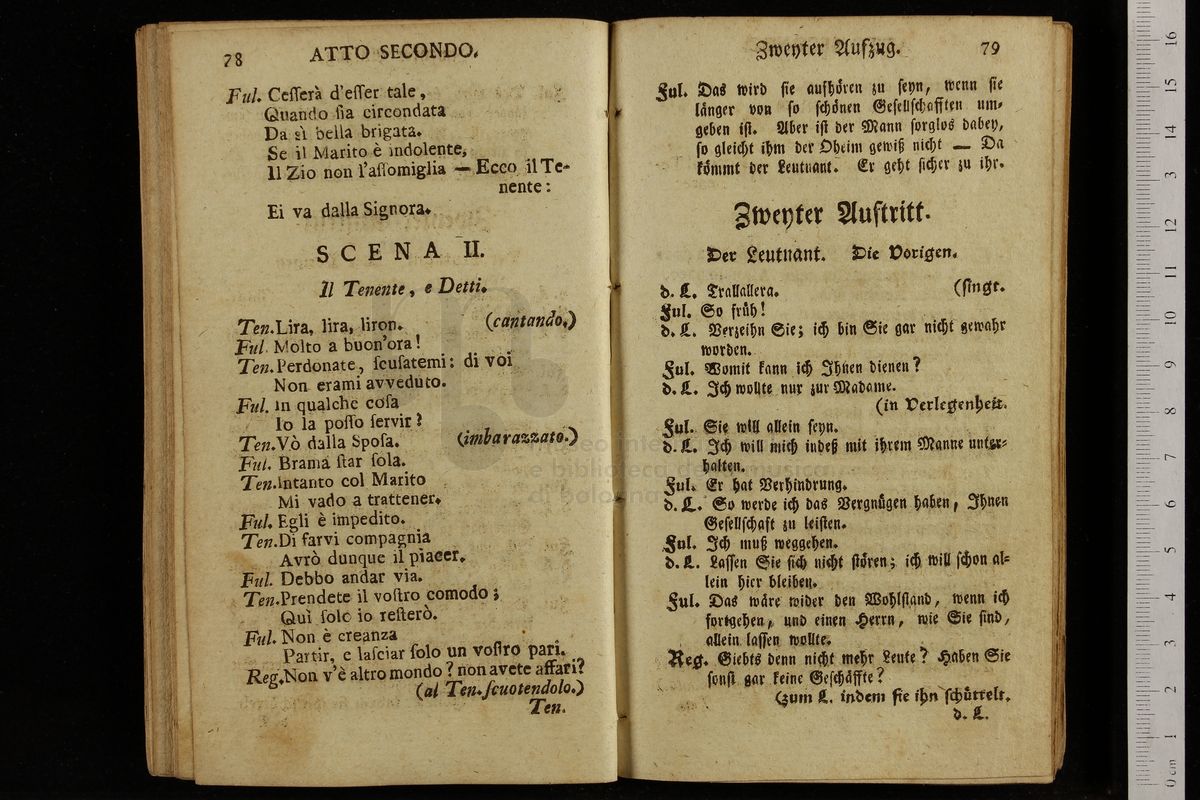 78 ATTO SECONDO.
Ful. Ceſſerà d'eſſer tale,
Quando ſia circondata
Da sì bella brigata.
Se il Marito è indolente,
Il Zio non l'aſſomiglia — Ecco il Te-
nente:
Ei va dalla Signora.
SCENA II.
Il Tenente, e Detti.
Ten. Lira, lira, liron. (cantando.)
Ful. Molto a buon'ora!
Ten. Perdonate, ſcuſatemi: di voi
Non erami avveduto.
Ful. In qualche coſa
Io la poſſo ſervir?
Ten. Vò dalla Spoſa. (imbarazzato.)
Ful. Brama ſtar ſola.
Ten. Intanto col Marito
Mi vado a trattener.
Ful. Egli è impedito.
Ten. Di farvi compagnia
Avrò dunque il piacer.
Ful. Debbo andar via.
Ten. Prendete il voſtro comodo;
Quì ſolo io reſterò.
Ful. Non è creanza
Partir, e laſciar ſolo un voſtro pari.
Reg. Non v'è altro mondo? non avete affari?
(al Ten. ſcuotendolo.)
Ten.
Zweyter Aufzug. 79
Ful. Das wird ſie aufhören zu ſeyn, wenn ſie
länger von ſo ſchönen Geſellſchafften um-
geben iſt. Aber iſt der Mann ſorglos dabey,
ſo gleicht ihm der Oheim gewiß nicht — Da
kömmt der Leutnant. Er geht ſicher zu ihr.
Zweyter Auftritt.
Der Leutnant. Die Vorigen.
d. L. Trallallera. (ſingt.
Ful. So früh!
d. L. Verzeihn Sie; ich bin Sie gar nicht gewahr
worden.
Ful. Womit kann ich Ihnen dienen?
d. L. Ich wollte nur zur Madame.
(in Verlegenheit.
Ful. Sie will allein ſeyn.
d. L. Ich will mich indeß mit ihrem Manne unter-
halten.
Ful. Er hat Verhindrung.
d. L. So werde ich das Vergnügen haben, Ihnen
Geſellſchaft zu leiſten.
Ful. Ich muß weggehen.
d. L. Laſſen Sie ſich nicht ſtören; ich will ſchon al-
lein hier bleiben.
Ful. Das wäre wider den Wohlſtand, wenn ich
fortgehen, und einen Herrn, wie Sie ſind,
allein laſſen wollte.
Reg. Giebts denn nicht mehr Leute? Haben Sie
ſonſt gar keine Geſchäffte?
(zum L. indem ſie ihn ſchüttelt.
d. L.
museo internazionale
e biblioteca della musica
di bologna
0 cm 1 2 3 4 5 6 7 8 9 10 11 12 13 14 15 16